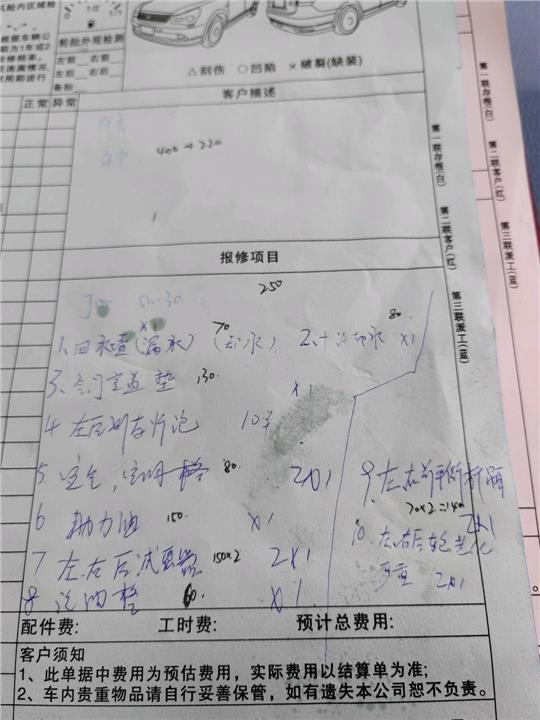 风险内区域检
0 1/2 1/1
轮胎外观检测
根据车辆公
期为1年或2
左前 右前
左后 右后
备胎
△划伤 ○凹陷 ×破裂(缺装)
正常 异常
客户描述
400+220
报修项目
250
5w-30
1、回水管(漏水) x1 70
2、十冷却水 80 x1
3、气门室盖垫 130 x1
4 左后刹车灯泡 10元
5. 80 2x1
6 助力油 150 x1
7 左.右后减震器 150x2 2x1
8 汽油 60 x1
9、左右前平衡杆
70x2=140 2x1
10、左右后轮老化
严重 2x1
配件费: 工时费: 预计总费用:
客户须知
1、此单据中费用为预估费用，实际费用以结算单为准;
2、车内贵重物品请自行妥善保管，如有遗失本公司恕不负责。
第一联存根(白) 第二联客户(红) 第三联派工(蓝)
第一联存根(白) 第二联客户(红) 第三联派工(蓝)